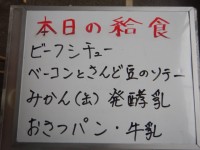 本日の給食
ビーフシチュー
ベーコンとさんど豆のソテー
みかん(缶) 発酵乳
おさつパン・牛乳